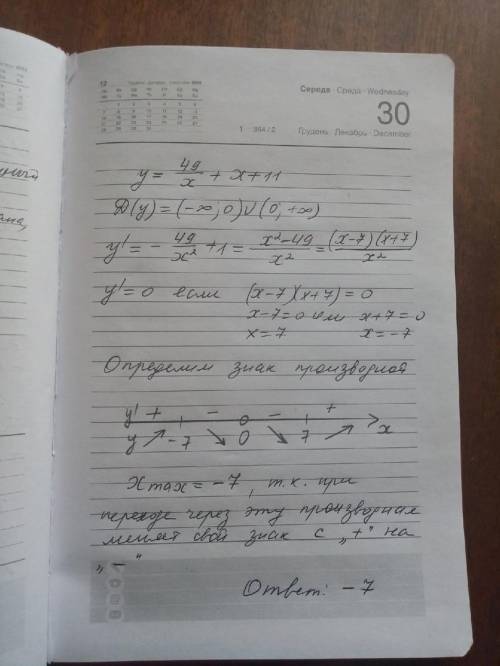 12
Середа · Среда · Wednesday
30
1 364 / 2
Грудень · Декабрь · December
y = 49/x + x + 11
D(y) = (-∞; 0)∪(0; +∞)
y' = - 49/x² + 1 = x² - 49/x² = (x-7)(x+7)/x²
y' = 0 если (x-7)(x+7) = 0
x-7=0 или x+7=0
x = 7 x = -7
Определим знак производной
y' + - 0 - +
y ↗ -7 ↘ 0 ↘ 7 ↗ x
x max = -7, т.к. при
переходе через эту производная
меняет свой знак с „+" на
„-"
Ответ: -7